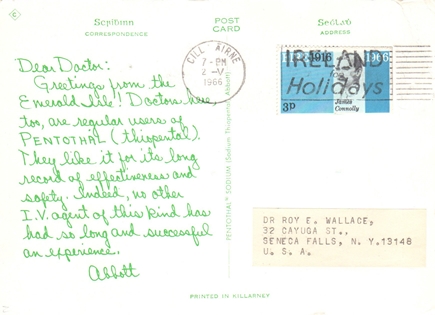 Scríbinn
CORRESPONDENCE
POST
CARD
Seoladh
ADDRESS
CILL AIRNE
7-PM
2-V
1966
1916
1966
IRELAND
for
Holidays
James
Connolly
3p
Dear Doctor:
Greetings from the
Emerald Isle! Doctors here,
too, are regular users of
PENTOTHAL (thiopental).
They like it for its long
record of effectiveness and
safety. Indeed, no other
I.V. agent of this kind has
had so long and successful
an experience.
Abbott
PENTOTHAL® SODIUM (Sodium Thiopental, Abbott)
DR ROY E. WALLACE,
32 CAYUGA ST.,
SENECA FALLS, N. Y.13148
U. S. A.
PRINTED IN KILLARNEY